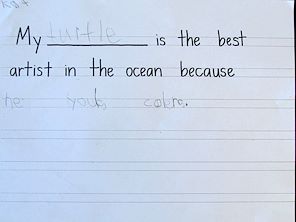 My turtle is the best
artist in the ocean because
he